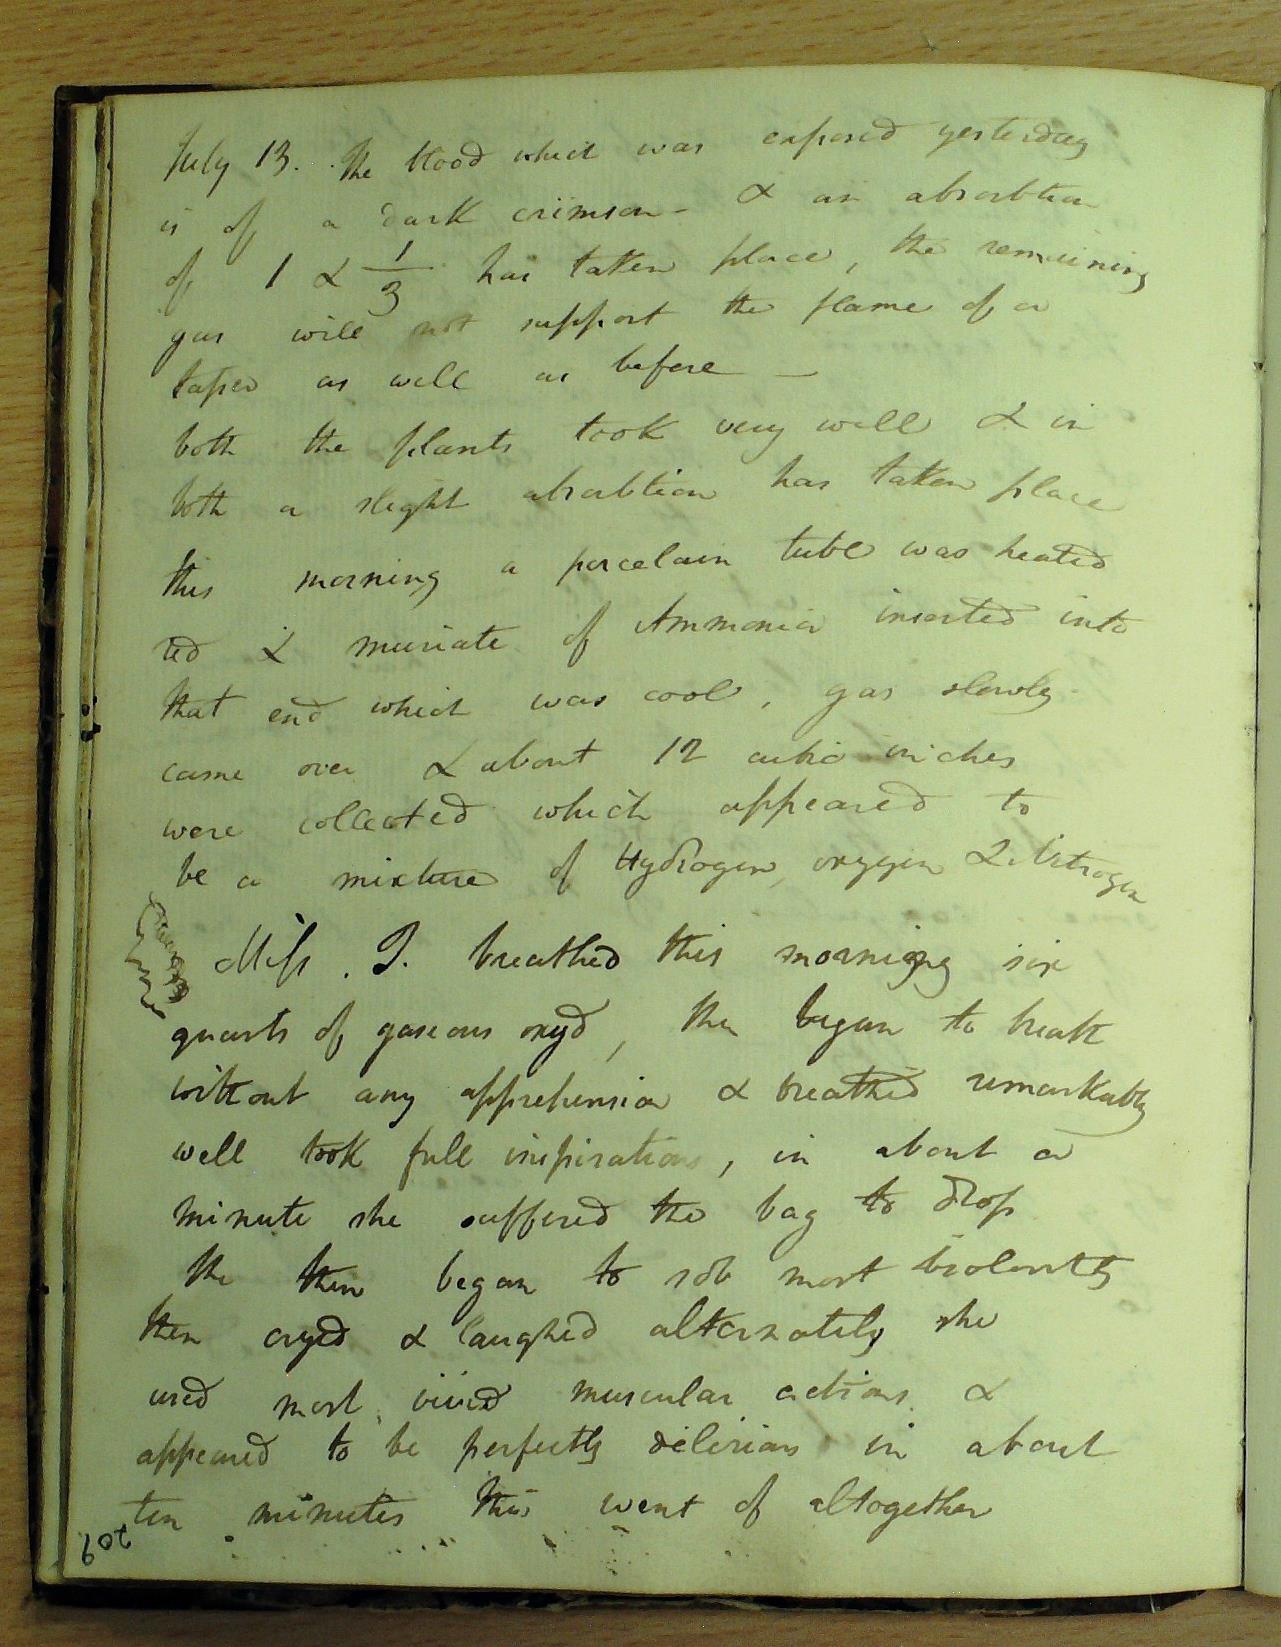 July 13. The blood which was exposed yesterday
is of a dark crimson - & an absorbtion
of 1 & 1/3 has taken place, the remaining
gas will not support the flame of a
taper as well as before —
both the plants took very well & in
both a slight absorbtion has taken place
this morning a porcelain tube was heated
red & muriate of Ammonia inserted into
that end which was cool, gas slowly
came over & about 12 cubic inches
were collected which appeared to
be a mixture of Hydrogen, oxygen & Nitrogen
Miss. T. breathed this morning six
quarts of gaseous oxyd, she began to breath
without any apprehension & breathed remarkably
well took full inspirations, in about a
minute she suffered the bag to drop
She then began to sob most violently
then cryed & laughed alternately she
used most vivid muscular actions &
appeared to be perfectly delirious in about
ten minutes this went of altogether
209